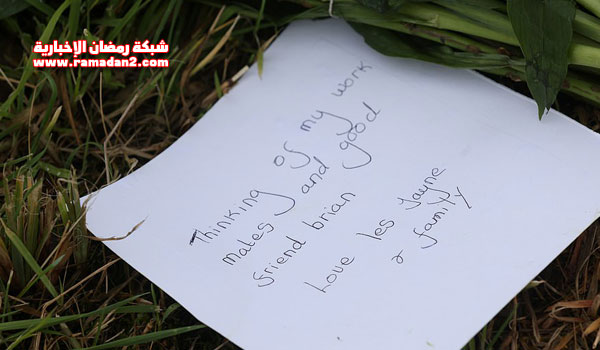 شبكة رمضان الإخبارية
www.ramadan2.com
Thinking of my work
mates and good
friend brian
Love les Jayne
& family